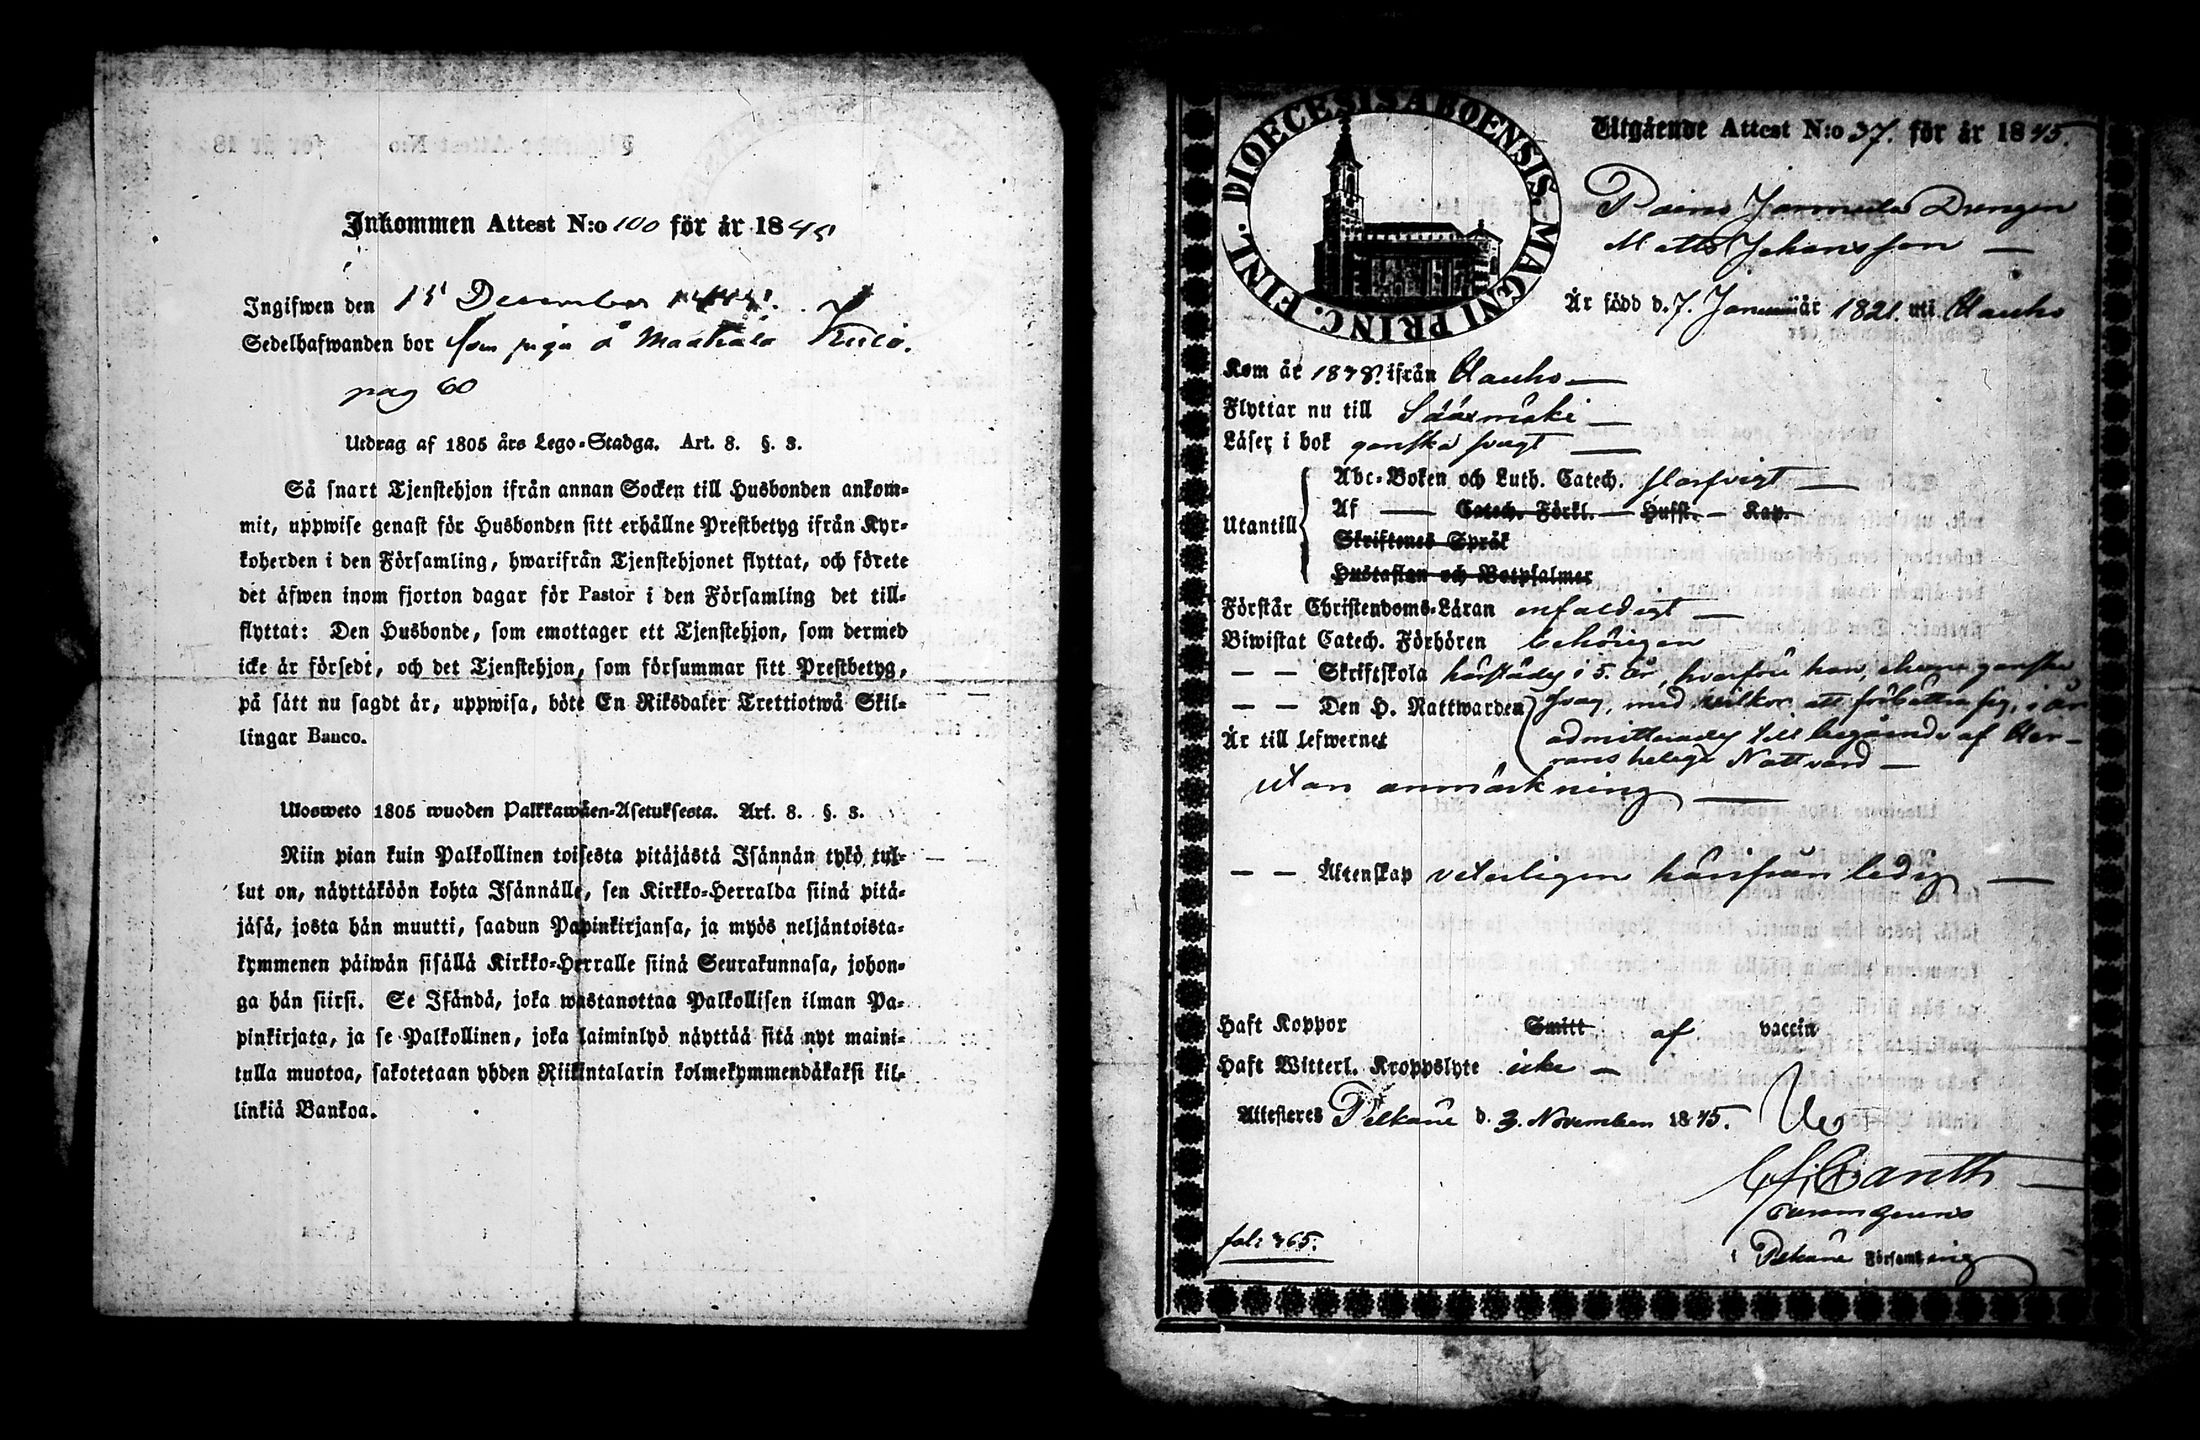 Inkommen Attest N:o 100 för år 1845
Ingifwen den 15 December
Sedelhafwanden bor som piga å
pag 60
Utdrag af 1805 års Lego-Stadga. Art. 8. §. 3.
Så snart Tjenstehjon ifrån annan Socken till Husbonden ankom-
mit, uppwise genast för Husbonden sitt erhållne Prestbetyg ifrån Kyr-
koherden i den Församling, hwarifrån Tjenstehjonet flyttat, och förete
det äfwen inom fjorton dagar för Pastor i den Församling det till-
flyttat: Den Husbonde, som emottager ett Tjenstehjon, som dermed
icke är försedt, och det Tjenstehjon, som försummar sitt Prestbetyg,
på sätt nu sagdt är, uppwisa, böte En Riksdaler Trettiotwå Skil-
lingar Banco.
Ulosweto 1805 wuoden Palkkawäen-Asetuksesta. Art. 8. §. 3.
Niin pian kuin Palkollinen toisesta pitäjästä Isännän tykö tul-
lut on, näyttäköön kohta Isännälle, sen Kirkko-Herralda siinä pitä-
jäsä, josta hän muutti, saadun Papinkirjansa, ja myös neljäntoista-
kymmenen päiwän sisällä Kirkko-Herralle siinä Seurakunnasa, johon-
ga hän siirsi. Se Isändä, joka wastanottaa Palkollisen ilman Pa-
pinkirjata, ja se Palkollinen, joka laiminlyö näyttää sitä nyt maini-
tulla muotoa, sakotetaan yhden Riikintalarin kolmekymmendäkaksi kil-
linkiä Bankoa.
DIOECESIS ABOENSIS. MAGNI PRINC. FINL.
Utgående Attest N:o 37. för år 1845.
Drengen
Matts Johansson
Är född d. 7. Januarii år 1821 uti Hauho
Kom år 1838. ifrån Hauho
Flyttar nu till Sääxmäki
Läser i bok ganska svagt
Utantill
Abc-Boken och Luth. Catech. slarfvigt
Af — Catech. Förkl. — Hufst. — Kap.
Skriftenes Språk
Hustaflan och Botpsalmer
Förstår Christendoms-Läran enfaldigt
Biwistat Catech. Förhören behörigen
— — Skriftskola härstädes i 5. år, hvarföre han, ehuru ganska
— — Den H. Nattwarden svag, med vilkor att förbättra sig, i år
Är till lefwernet admitterades till begående af Her-
rans heliga Nattvard
utan anmärkning
— — Äktenskap veterligen härifrån ledig
Haft Koppor Smitt af vaccin
Haft Witterl. Kroppslyte icke
Attesteras Pelkäne d. 3. November 1845.
fol: 365.
i Pelkäne Församling